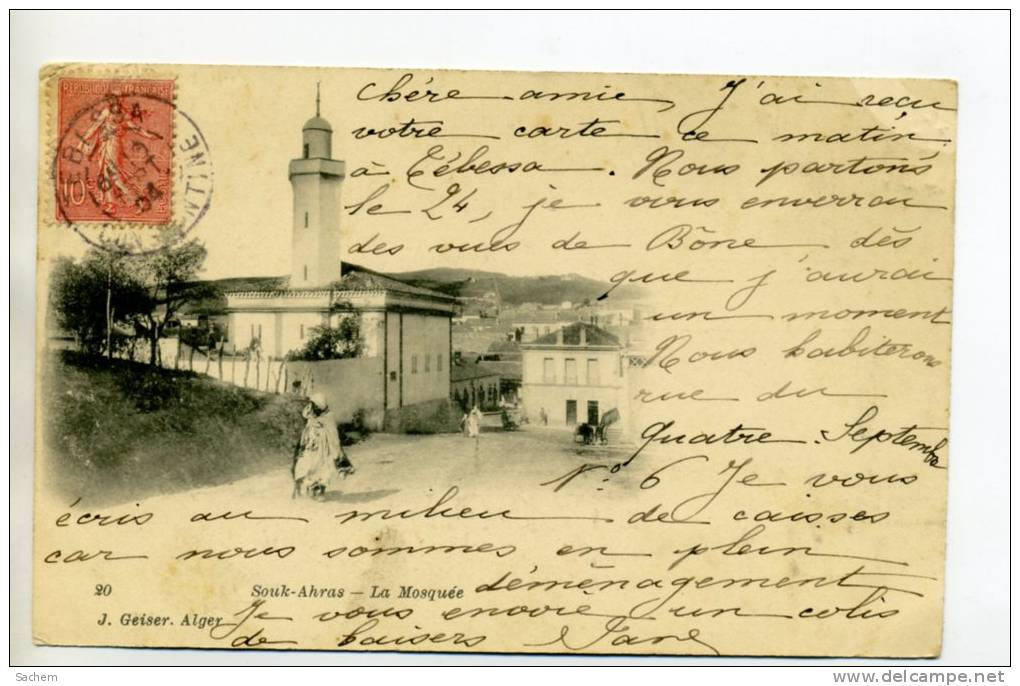 RÉPUBLIQUE FRANÇAISE
10
04
chère amie, J'ai recu
votre carte ce matin
à Tébessa. Nous partons
le 24, je vous enverrai
des vues de Bône dès
que j'aurai
un moment
Nous habiterons
rue du
quatre Septembre
N° 6 Je vous
écris au milieu de caisses
car nous sommes en plein
déménagement
Je vous envoie un colis
de baisers Jane
20 Souk-Ahras – La Mosquée
J. Geiser. Alger
Sachem
www.delcampe.net